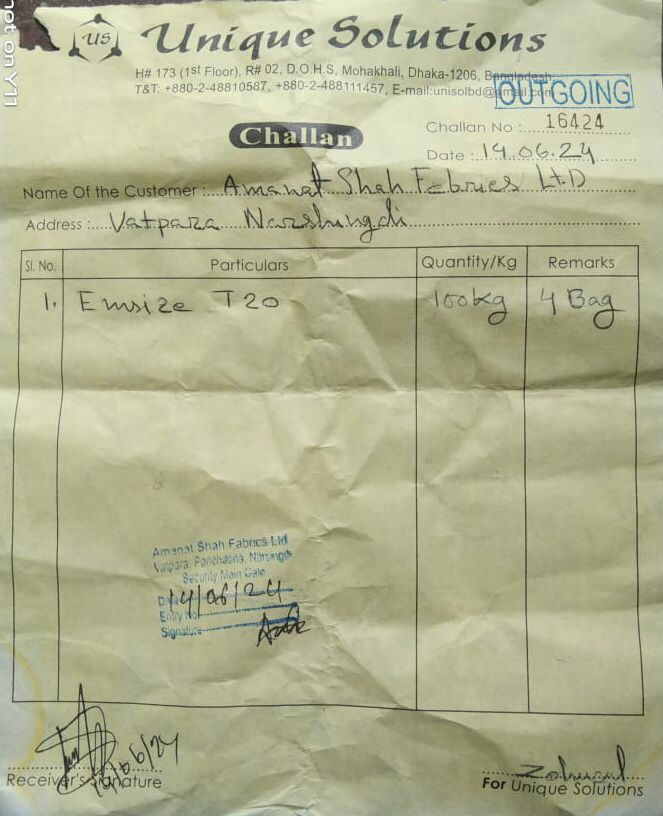 not on Y11
US
Unique Solutions
H# 173 (1st Floor), R# 02, D.O.H.S, Mohakhali, Dhaka-1206, Bangladesh
T&T: +880-2-48810587, +880-2-488111457, E-mail:unisolbd@gmail.com
OUTGOING
Challan
Challan No : 16424
Date : 14.06.24
Name Of the Customer : Amanat Shah Febrics LTD
Address : Vatpara Narshingdi
Sl. No. Particulars Quantity/Kg Remarks
1. Emsize T20 100kg 4 Bag
Amanat Shah Fabrics Ltd
Vatpara, Panchdona, Narsingdi
Security Main Gate
Date 14/06/24
Entry No
Signature
Receiver's Signature
For Unique Solutions